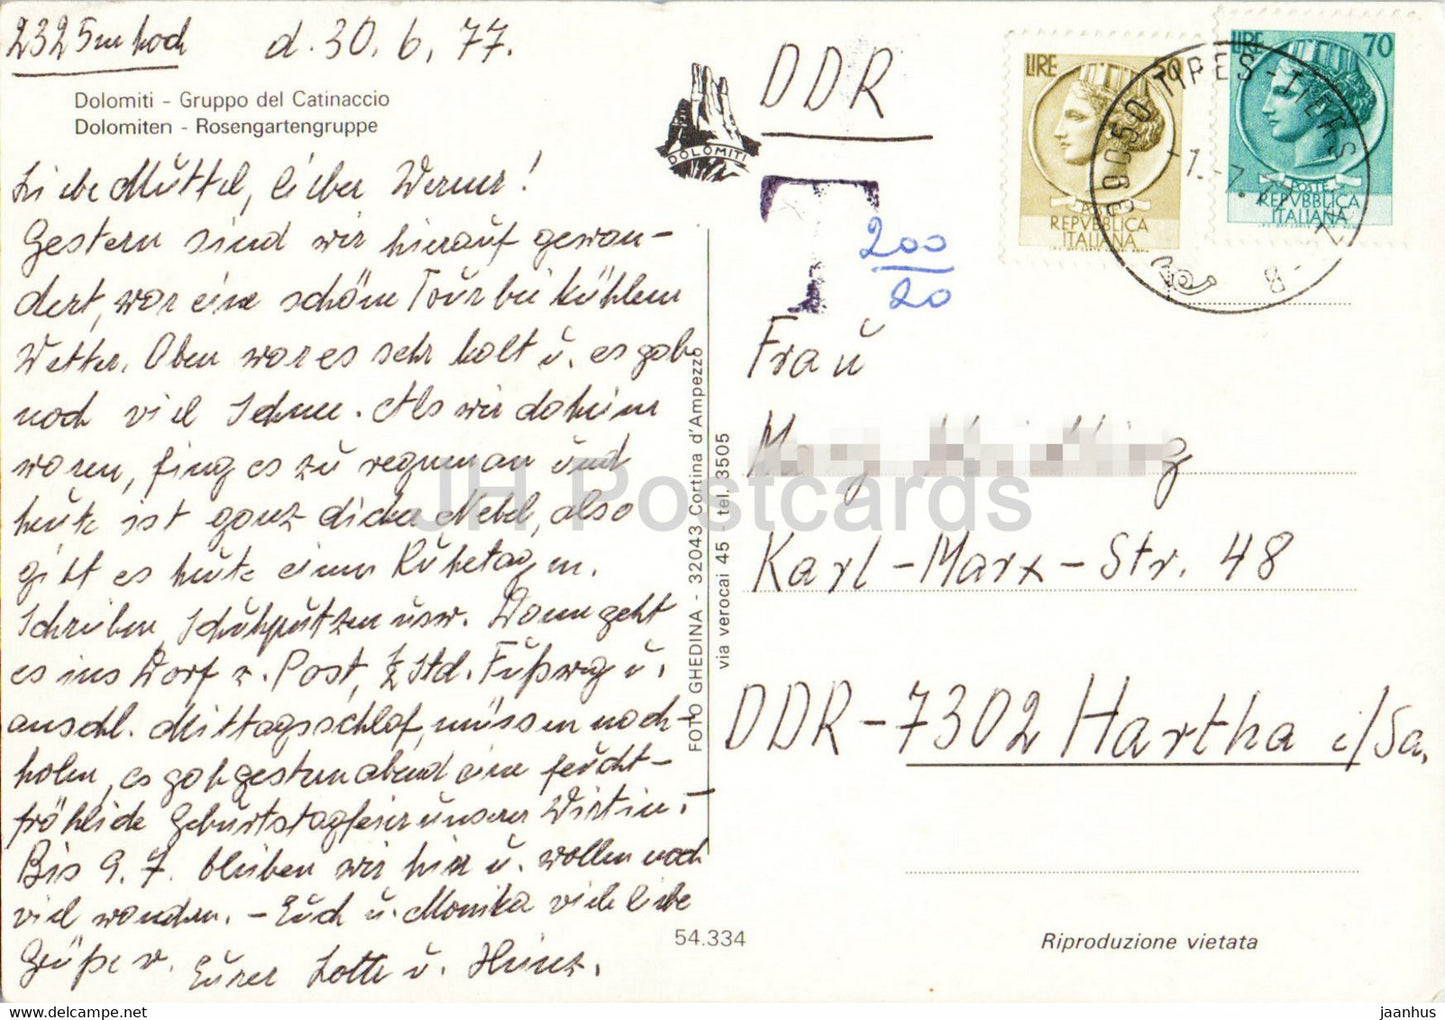 2325m hoch d. 30.6.77.
Dolomiti - Gruppo del Catinaccio
Dolomiten - Rosengartengruppe
Liebe Muttel, lieber Werner!
Gestern sind wir hierauf gewan-
dert, war eine schöne Tour bei kühlem
Wetter. Oben war es sehr kalt u. es gab
noch viel Schnee. Als wir daheim
waren, fing es zu regnen an und
heute ist ganz dicker Nebel, also
gibt es heute einen Ruhetag m.
Schreiben, Schuhputzen usw. Dann geht
es ins Dorf z. Post, Std. Fußweg u.
anschl. Mittagsschlaf, müssen nach-
holen, es gab gestern abend eine feucht-
fröhliche Geburtstagfeier unserer Wirtin.-
Bis 9.7. bleiben wir hier u. wollen noch
viel wandern. - Euch u. Monika viele liebe
Grüße v. Eurer Lotte u. Heinz.
FOTO GHEDINA - 32043 Cortina d'Ampezzo
via verocai 45 - tel. 3505
54.334
DOLOMITI
DDR
T
200
20
LIRE
POSTE
REPVBBLICA
ITALIANA
LIRE 70
POSTE
REPVBBLICA
ITALIANA
39050 TIRES - TIERS
Frau
Karl-Marx-Str. 48
DDR-7302 Hartha i/Sa.
Riproduzione vietata
JH Postcards
jaanhus